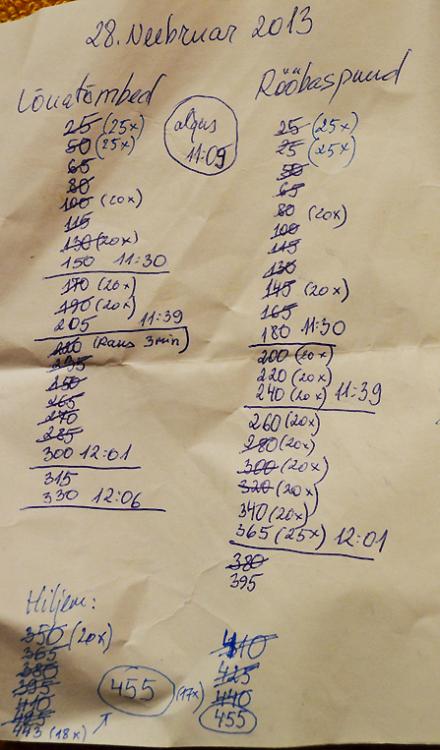 28. Veebruar 2013
Lõuatõmbed
25 (25x)
50 (25x)
65
80
100 (20x)
115
130 (20x)
150 11:30
170 (20x)
190 (20x)
205 11:39
220 (Paus 3min)
235
250
265
270
285
300 12:01
315
330 12:06
algus
11:05
Rööbaspuud
25 (25x)
25 (25x)
50
65
80 (20x)
100
115
130
145 (20x)
165
180 11:30
200 (20x)
220 (20x)
240 (20x) 11:39
260 (20x)
280 (20x)
300 (20x)
320 (20x)
340 (20x)
365 (25x) 12:01
380
395
Hiljem:
350 (20x)
365
380
395
410
425
443 (18x)
455 (17x)
410
425
440
455